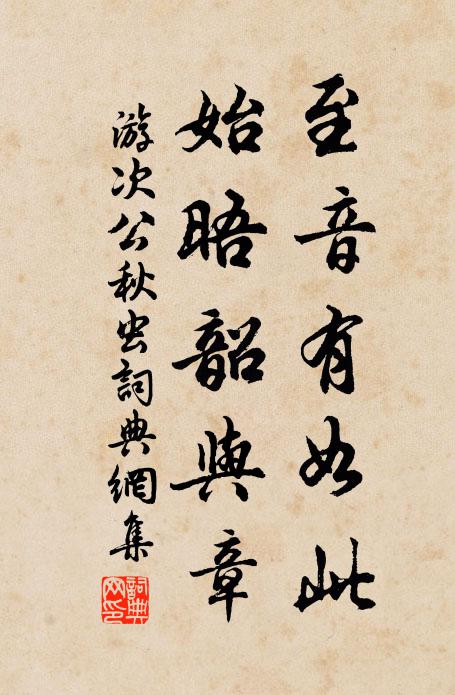 至音有如此
始晤韶與章
游次公秋虫詞典網集
詞典
网印